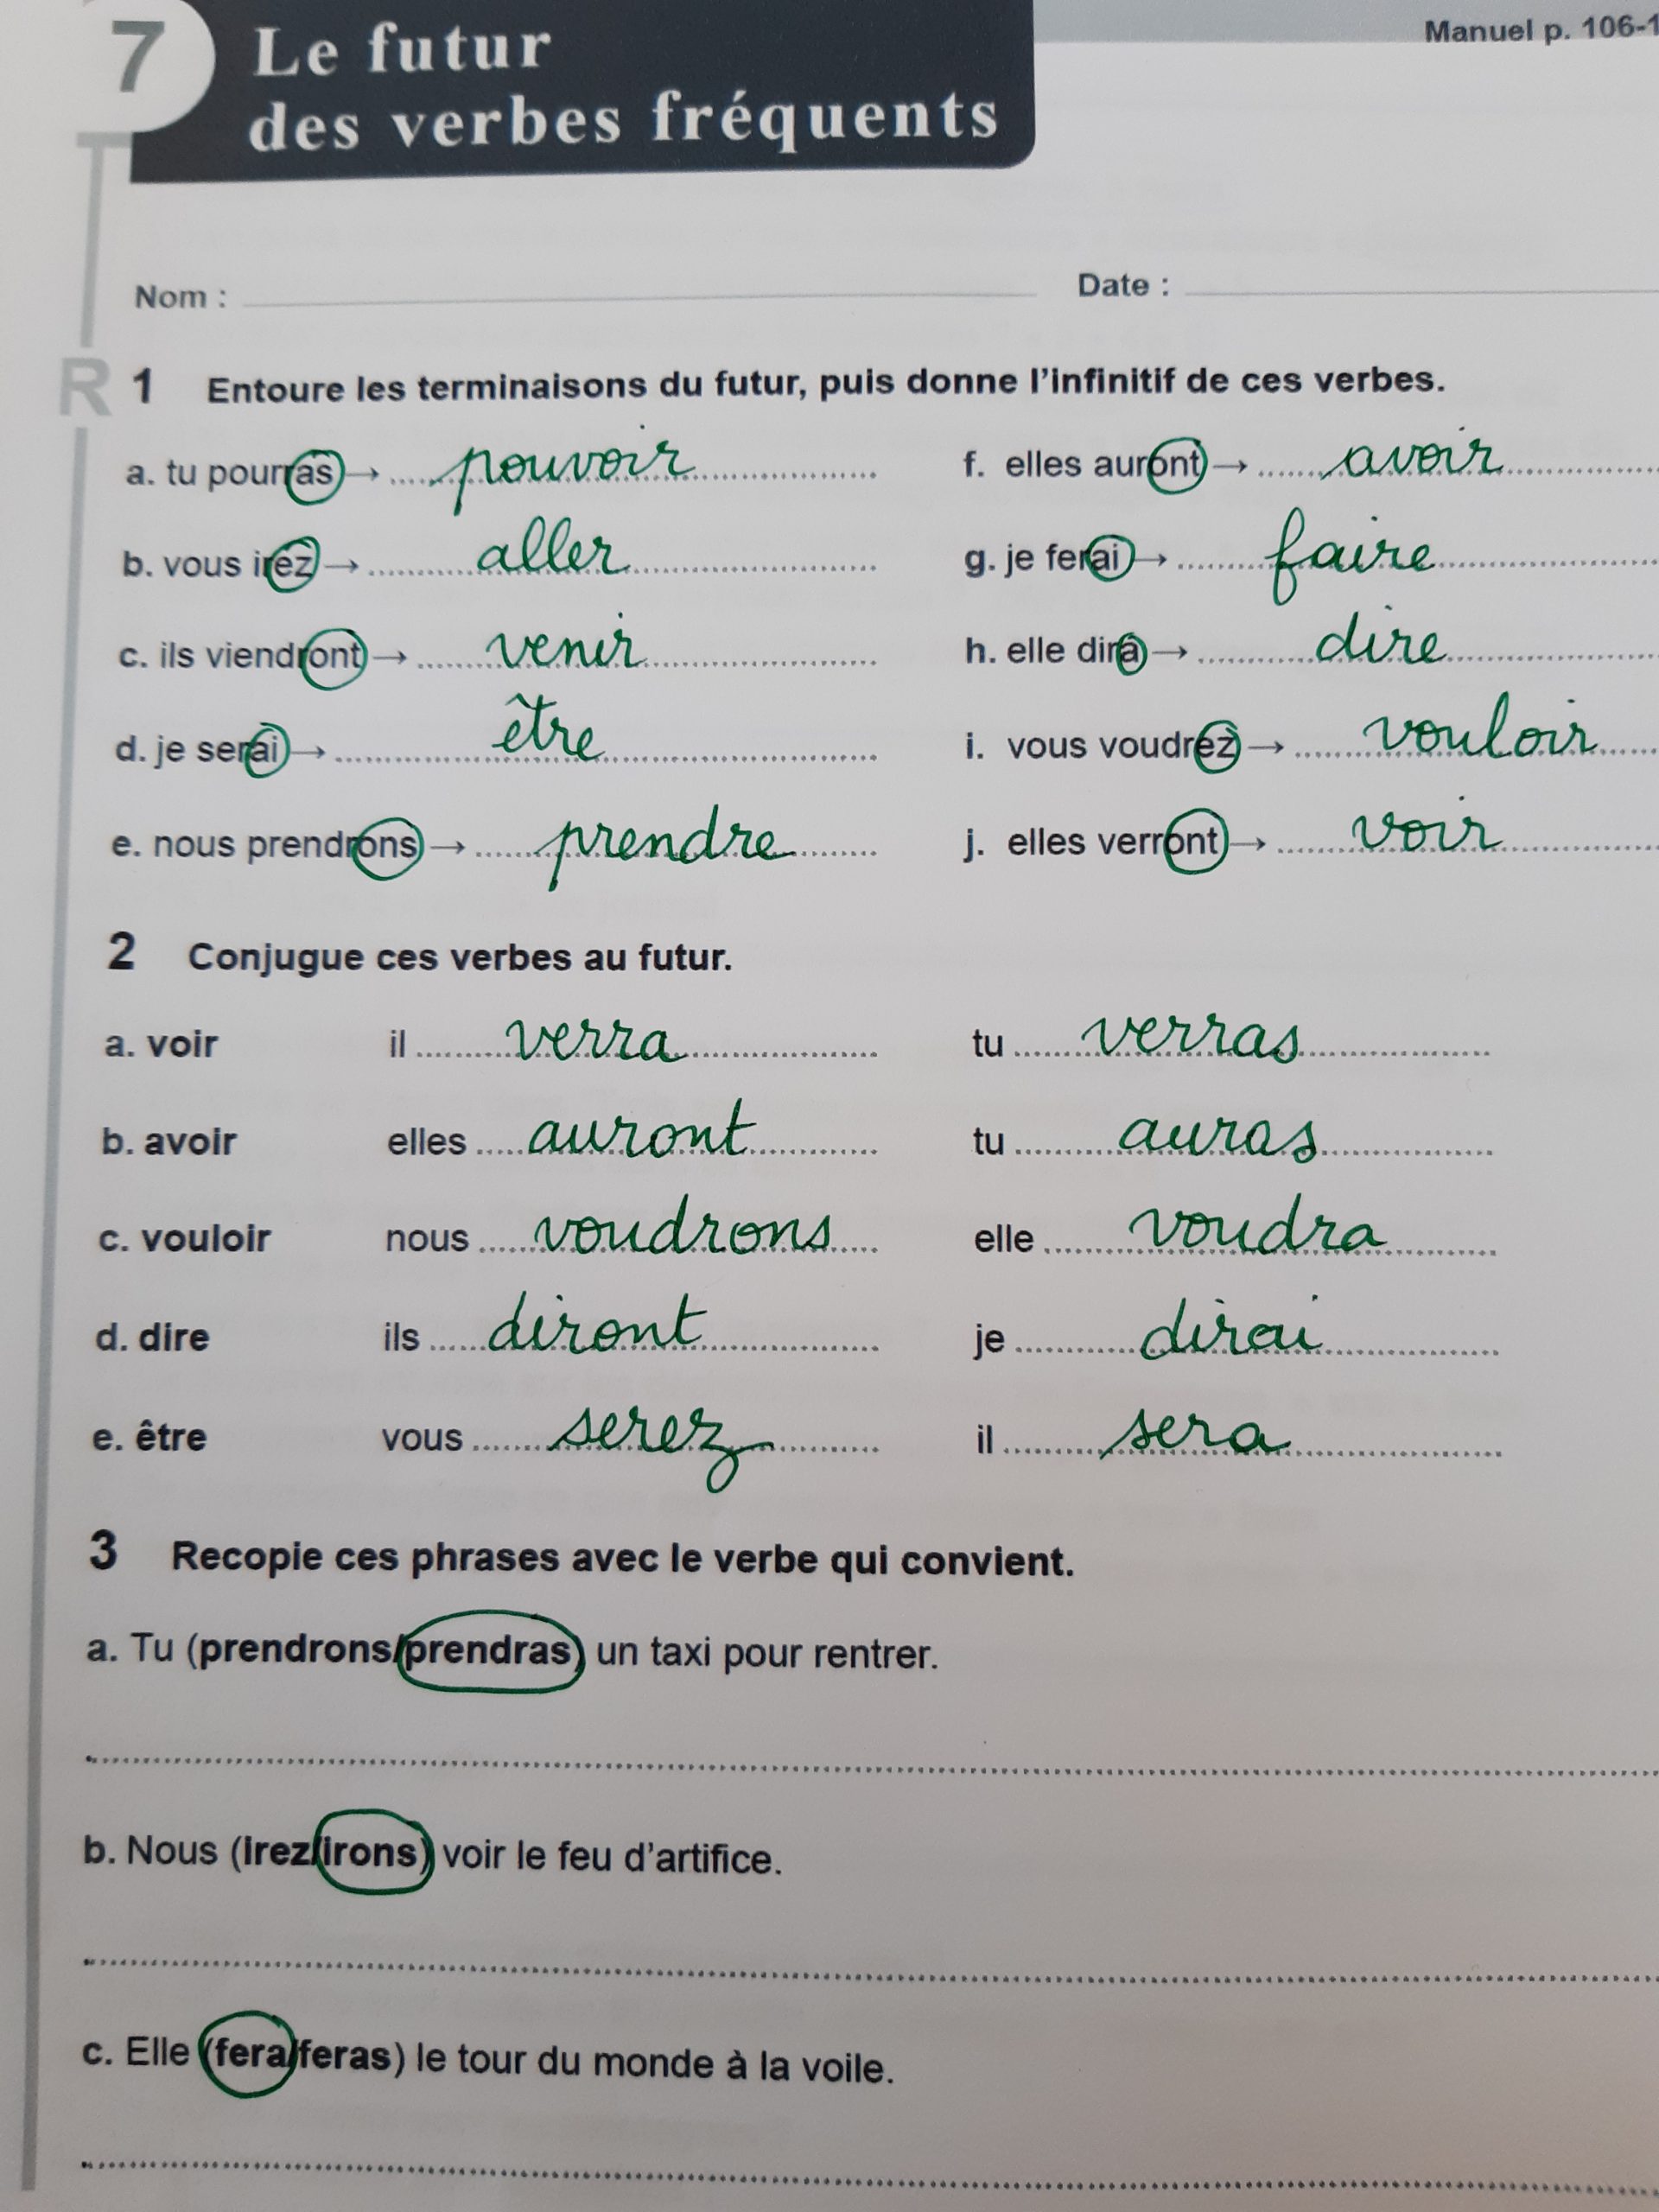 7 Le futur
des verbes fréquents
Manuel p. 106-1
Nom : Date :
R 1 Entoure les terminaisons du futur, puis donne l'infinitif de ces verbes.
a. tu pourras → pouvoir f. elles auront → avoir
b. vous irez → aller g. je ferai → faire
c. ils viendront → venir h. elle dira → dire
d. je serai → être i. vous voudrez → vouloir
e. nous prendrons → prendre j. elles verront → voir
2 Conjugue ces verbes au futur.
a. voir il verra tu verras
b. avoir elles auront tu auras
c. vouloir nous voudrons elle voudra
d. dire ils diront je dirai
e. être vous serez il sera
3 Recopie ces phrases avec le verbe qui convient.
a. Tu (prendrons/prendras) un taxi pour rentrer.
b. Nous (irez/irons) voir le feu d'artifice.
c. Elle (fera/feras) le tour du monde à la voile.